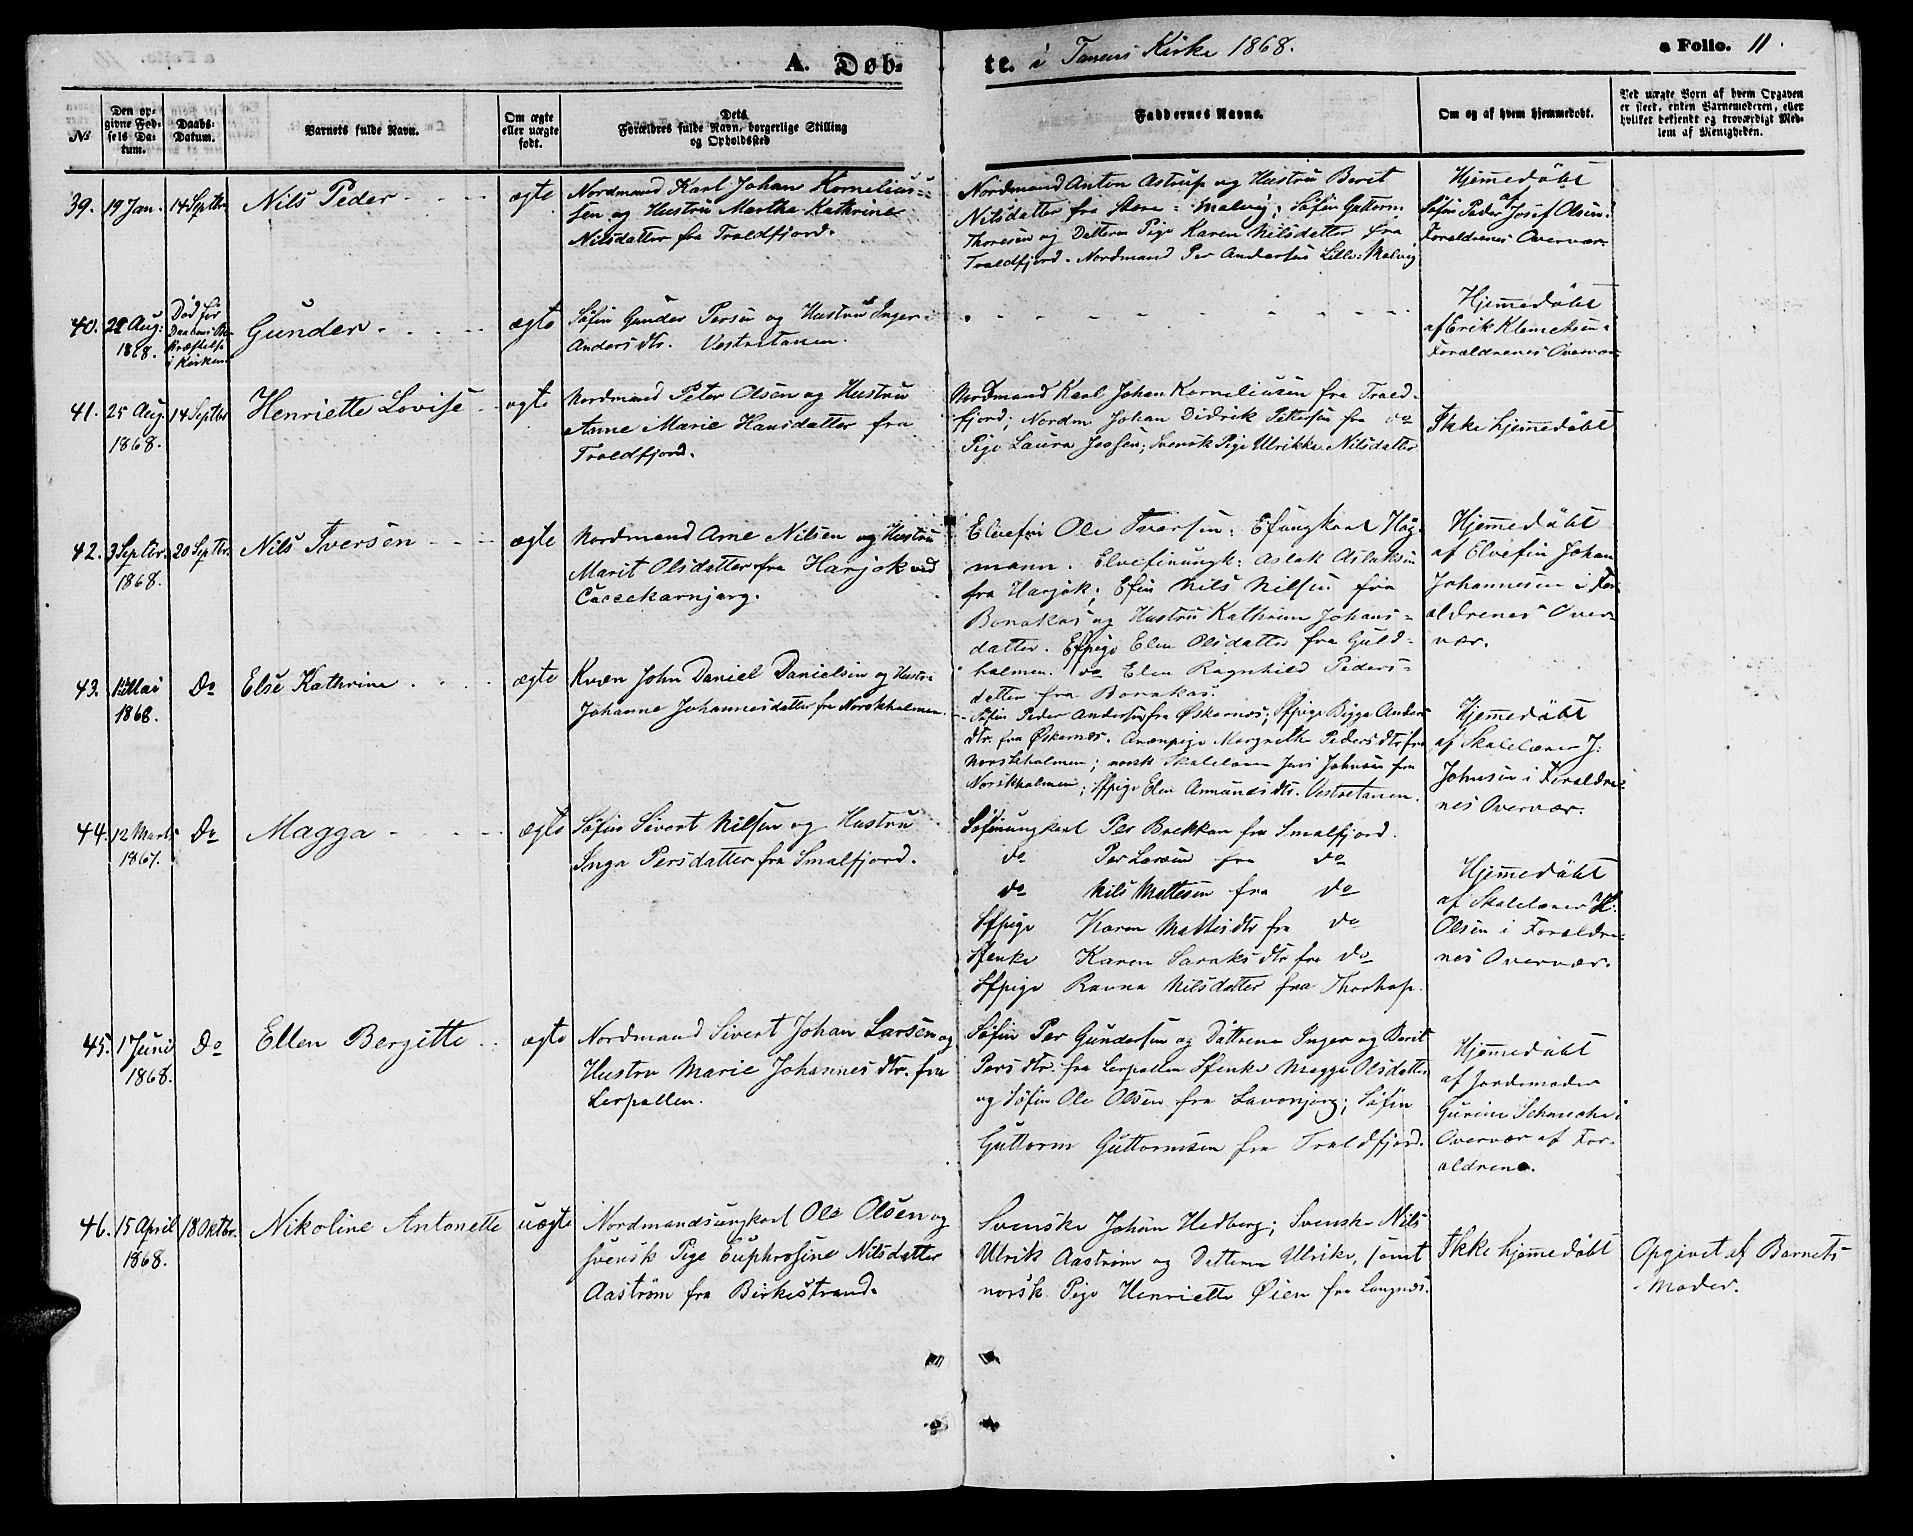 A. Døb-
te. i Tanens Kirke 1868.
a Folio. 11.
No
Den op-
givne Fød-
sels Da-
tum.
Daabs-
Datum.
Barnets fulde Navn.
Om ægte
eller uægte
født.
Dets
Forældres fulde Navn, borgerlige Stilling
og Opholdssted
Faddernes Navne.
Om og af hvem hjemmedøbt.
Ved uægte Børn af hvem Opgaven
er skeet, enten Barnemoderen, eller
hvilket bekjendt og troværdigt Med-
lem af Menigheden.
39. 19 Jan. 14 Septbr. Nils Peder ægte
Nordmand Karl Johan Kornelius-
sen og Hustru Marthe Kathrine
Nilsdatter fra Troldfjord.
Nordmand Anton Astrup og Hustru Berit
Nilsdatter fra Store-Malvig; Søfin Guttorm
Thoresen og Datteren Pige Karen Nilsdatter fra
Troldfjord. Nordmand Per Andersens Lille-Malvig
Hjemmedöbt
af
Søfin Peder Josef Olsen i
Forældrenes Overvær.
40. 22 Aug:
1868.
Død før
Daabens Be-
kræftelse
i Kirken
Gunder ægte
Søfin Gunder Persen og Hustru Inger
Andersdtr. Vestretanen.
Hjemmedöbt
af Erik Klemetsen i
Forældrenes Overvær
41. 25 Aug.
1868.
14 Septbr Henriette Lovise ægte
Nordmand Peter Olsen og Hustru
Anne Marie Hansdatter fra
Troldfjord.
Nordmand Karl Johan Korneliusen fra Trold-
fjord; Nordm Johan Didrik Pettersen fra do
Pige Laura Jessen; Svensk Pige Ulrikke Nilsdatter
Ikke hjemmedöbt
42. 3 Septbr.
1868.
20 Septbr. Nils Iversen ægte
Nordmand Arne Nilsen og Hustru
Marit Olsdatter fra Harjok ved
Caccekarnjarg.
Elvefin Ole Iversen; Efungkarl Hög-
mann. Elvefinungk: Aslak Aslaksen
fra Harjok; Efin Nils Nilsen fra
Bonakas og Hustru Kathrine Johans-
datter. Effpige Elen Olsdatter fra Guld-
holmen. do Elen Ragnhild Peders-
datter fra Bonakas.
Hjemmedöbt
af Elvefin Johan
Johannesen i For-
ældrenes Over-
vær.
43. 12 Mai
1868.
Do Else Kathrine ægte
Kvæn John Daniel Danielsen og Hustru
Johanne Johannesdatter fra Norskholmen.
Søfin Peder Andersen fra Øskarnes; Sffpige Bigga Anders
dtr. fra Øskarnes. Qvænpige Margrethe Pedersdtr fra
Norskholmen; norsk Skolelærer Jens Johnsen fra
Norskholmen; Sffpige Elen Amundsdtr. Vestretanen.
Hjemmedöbt
af Skolelærer J:
Johnsen i Forældre-
nes Overvær.
44. 12 Marts
1867.
Do Magga ægte
Søfin Sivert Nilsen og Hustru
Inga Persdatter fra Smalfjord.
Søfinungkarl Per Brekkan fra Smalfjord.
do Per Larsen fra do
do Nils Mattesen fra do
Sffpige Karen Mattisdtr fra do
Sfenke Karen Saraksdtr fra do
Sffpige Ravna Nilsdatter fra Thorhop.
Hjemmedöbt
af Skolelærer H:
Olsen i Forældre-
nes Overvær.
45. 1 Juni
1868.
Do Ellen Bergitte ægte
Nordmand Sivert Johan Larsen og
Hustru Marie Johannesdtr. fra
Lerpollen.
Søfin Per Gundersen og Döttrene Inger og Berit
Persdtr. fra Lerpollen Sfenke Magga Olsdatter
og Søfin Ole Olsen fra Lavonjarg; Søfin
Guttorm Guttormsen fra Troldfjord.
Hjemmedöbt
af Jordemoder
Gurine Schanche i
Overvær af For-
ældrene.
46. 15 April
1868.
18 Oktbr. Nikoline Antonette uægte
Nordmandsungkarl Ole Olsen og
svensk Pige Euphrosine Nilsdatter
Aaström fra Birkestrand.
Svenske Johan Hedberg; Svensk Nils
Ulrik Aaström og Datteren Ulrike, samt
norsk Pige Henriette Øien fra Langnæs.
Ikke hjemmedöbt
Opgivet af Barnets
Moder.